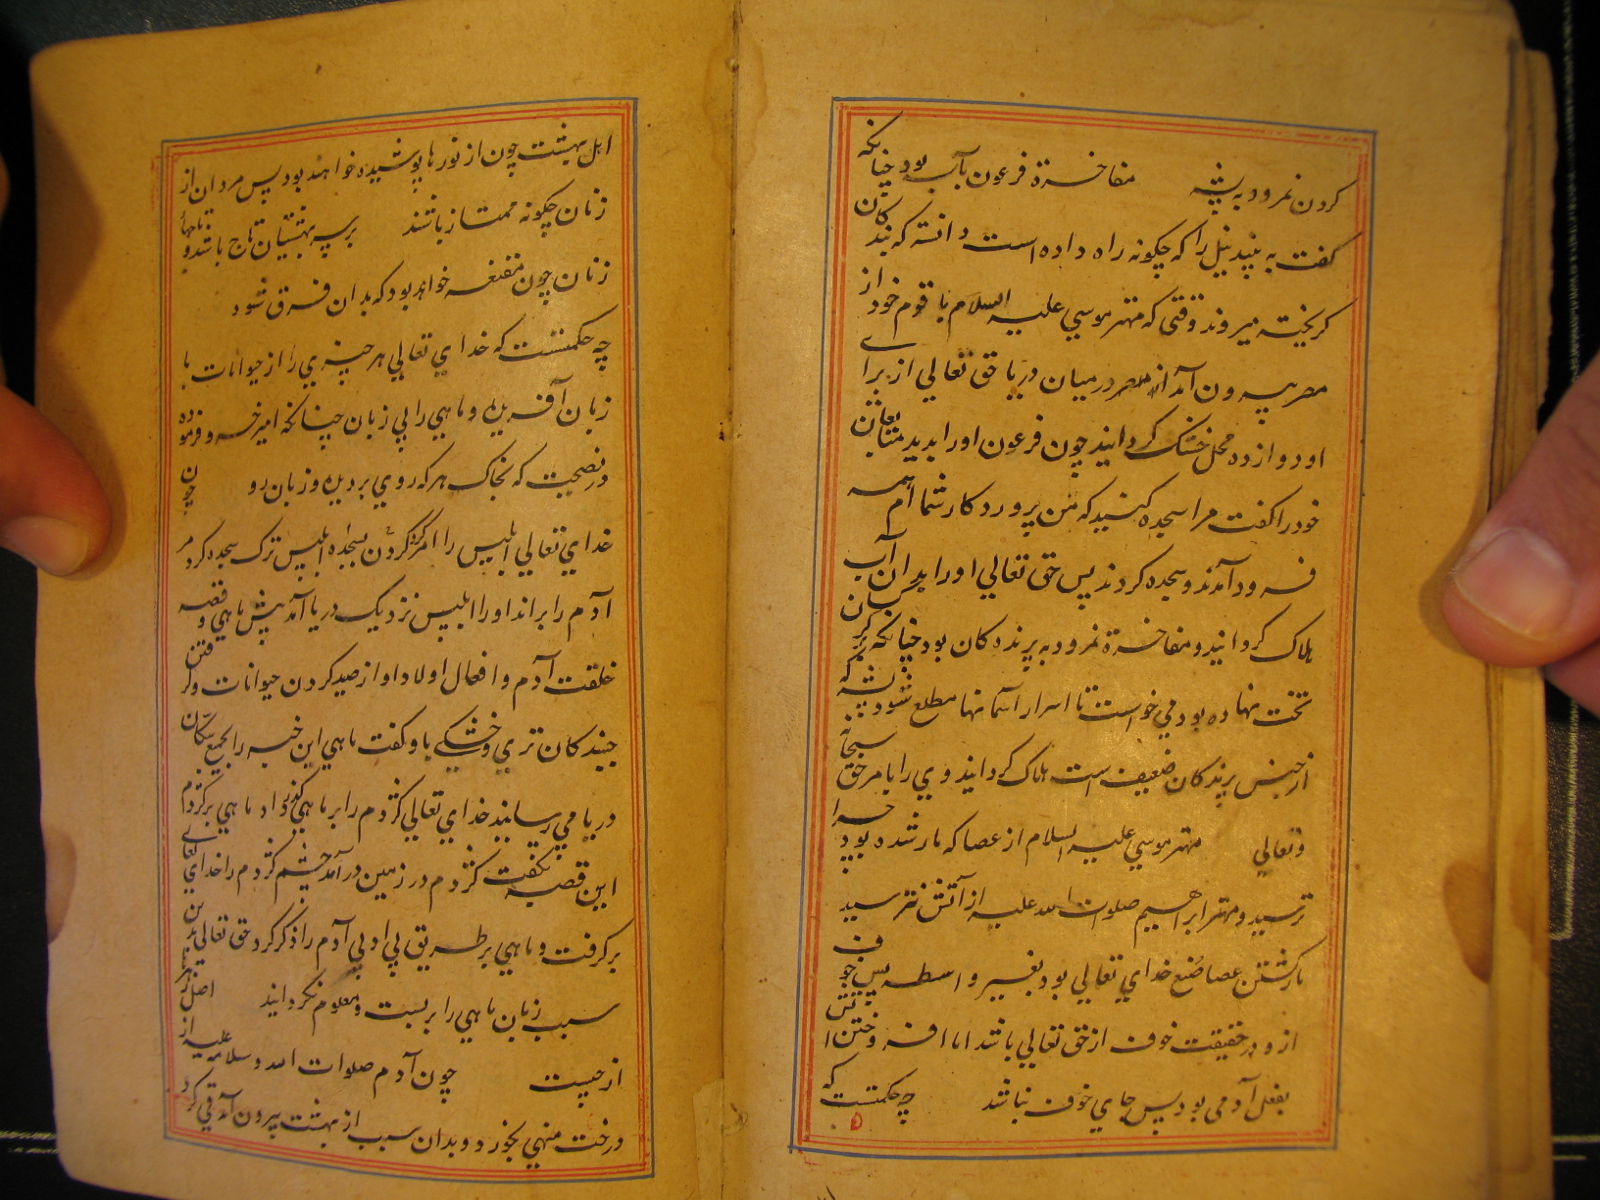 کردن نمرود به پشه مفاخرة فرعون بآب بود چنانکه
کفت به بینید نیل را که چکونه راه داده است دانسته که بندکان
کریخته میروند وقتی که مهتر موسي علیه السلام با قوم خود از
مصر بیرون آمد از مصر در میان دریا حق تعالي از براي
او دوازده محل خشک کردانید چون فرعون او را بدید متابعان
خود را کفت مرا سجده کنید که من پروردکار شما ام همه
فرود آمدند و سجده کردند پس حق تعالي او را بدان آب
هلاک کردانید و مفاخرة نمرود به پرنده کان بود چنانکه بر کرکسان
تخت نهاده بود مي خواست تا اسرار آسمانها مطلع شود پشه که
از جنس پرندکان ضعیف است هلاک کردانید وي را بامر حق سبحانه
وتعالي مهتر موسي علیه السلام از عصا که مار شده بود چرا
ترسید و مهتر ابراهیم صلوات الله علیه از آتش نترسید
مار کشتن عصا صنع خداي تعالي بود بغیر واسطه پس خوف
ازو در حقیقت خوف از حق تعالي باشد اما افروختن آتش
بفعل آدمی بود پس جاي خوف نباشد چه حکمتست که
اهل بهشت چون از نورها پوشیده خواهند بود پس مردان از
زنان چکونه ممتاز باشند بر سر بهشتیان تاج باشد و تاجهاء
زنان چون مقنعه خواهد بود که بدان فرق شود
چه حکمتست که خداي تعالي هر چیزي را از حیوانات با
زبان آفریده و ماهي را بي زبان چنانکه امیر خسرو فرموده
در نصیحت که بخاک هر که روي برد بریده زبان رو چون
خداي تعالي ابلیس را امر کردن بسجده ابلیس ترک سجده کرد مر
آدم را براند او را ابلیس نزدیک دریا آمد پیش ماهي و قصه
خلقت آدم و افعال اولاد او از صید کردن حیوانات و کرفتن
جنبندکان تري و خشکي با و کفت ماهي این خبر را بجمیع سکان
دریا مي رسانید خداي تعالي کژدم را بر ماهي کذر داد ماهي بر کژدم
این قصه بکفت کژدم در زمین در آمد چشم کژدم را خداي تعالي
بر کرفت و ماهي بر طریق بي ادبي آدم را ذکر کرد حق تعالي بدین
سبب زبان ماهي را بر بست و معلوم نکردانید اصل زهر
از چیست چون آدم صلوات الله وسلامه علیه از
درخت منهي بخورد و بدان سبب از بهشت بیرون آمد قي کرد